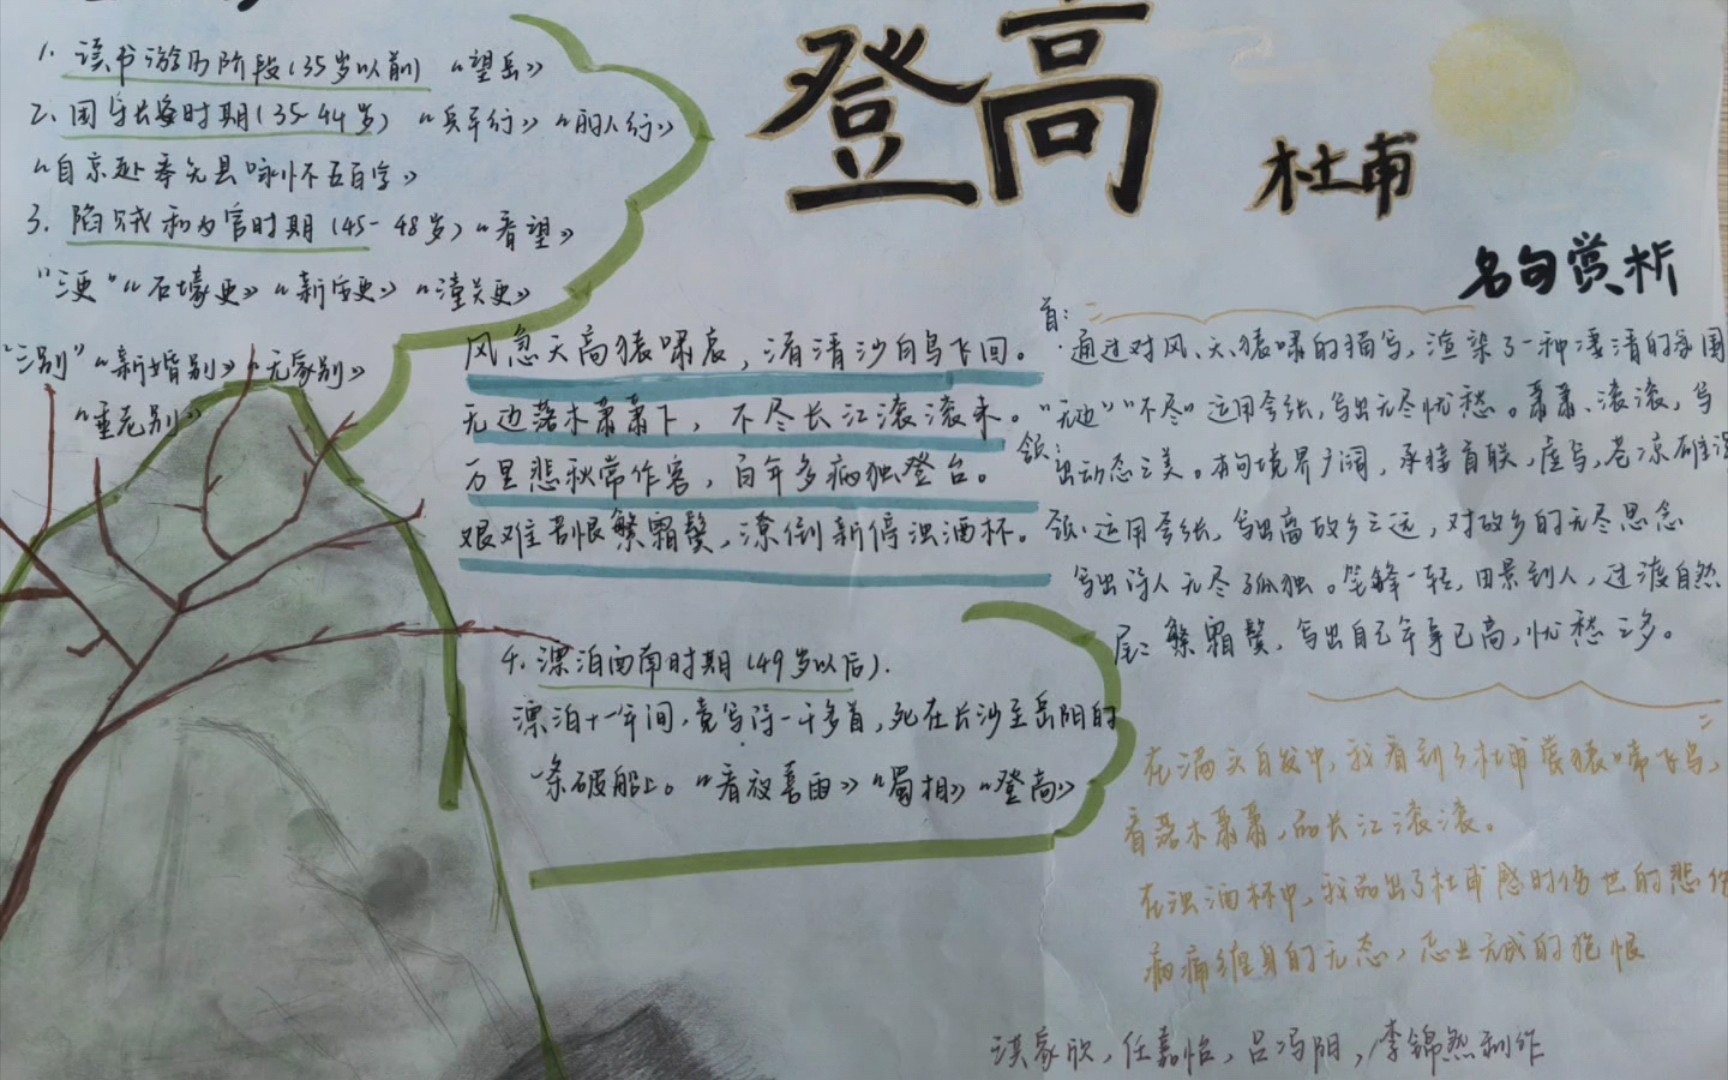 登高
杜甫
1. 读书游历阶段(35岁以前) 《望岳》
2. 困守长安时期(35-44岁) 《兵车行》《丽人行》
《自京赴奉先县咏怀五百字》
3. 陷贼和为官时期(45-48岁)《春望》
"三吏"《石壕吏》《新安吏》《潼关吏》
"三别"《新婚别》《无家别》
《垂老别》
风急天高猿啸哀，渚清沙白鸟飞回。
无边落木萧萧下，不尽长江滚滚来。
万里悲秋常作客，百年多病独登台。
艰难苦恨繁霜鬓，潦倒新停浊酒杯。
4. 漂泊西南时期(49岁以后).
漂泊十一年间，竟写诗一千多首，死在长沙至岳阳的
一条破船上。《春夜喜雨》《蜀相》《登高》
名句赏析
首：
通过对风、天、猿啸的描写，渲染了一种凄清的氛围
"无边""不尽"运用夸张，写出无尽忧愁。萧萧、滚滚，写
颔：出动态之美。本句境界广阔，承接首联，虚写，苍凉雄浑
颈：运用夸张，写出离故乡之远，对故乡的无尽思念
写出诗人无尽孤独。笔锋一转，由景到人，过渡自然
尾：繁霜鬓，写出自己年事已高，忧愁之多。
在满头白发中，我看到了杜甫 猿啼飞鸟，
看落木萧萧，品长江滚滚。
在浊酒杯中，我品出了杜甫感时伤世的悲伤
病痛缠身的无态，志业无成的抱恨
家欣，任嘉怡，吕冯阳，李锦然制作